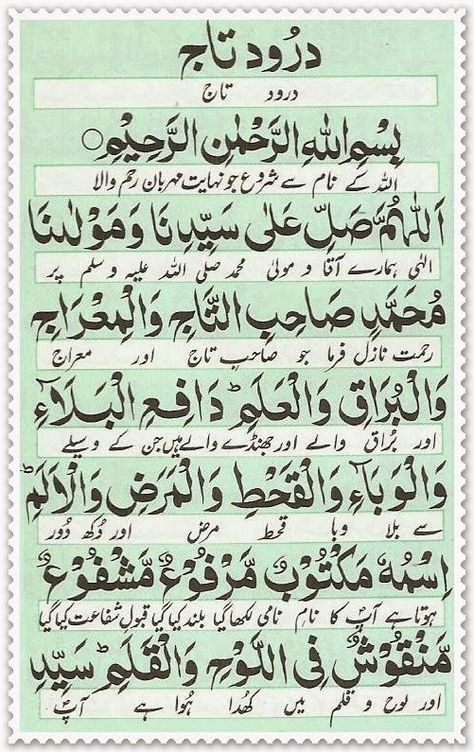 درُود تاج
درود تاج
بِسْمِ اللهِ الرَّحْمٰنِ الرَّحِيْمِ
اللہ کے نام سے شروع جو نہایت مہربان رحم والا
اَللّٰهُمَّ صَلِّ عَلٰى سَيِّدِنَا وَمَوْلٰىنَا
الٰہی ہمارے آقا و مولیٰ محمد صلی اللہ علیہ وسلم پر
مُحَمَّدٍ صَاحِبِ التَّاجِ وَالْمِعْرَاجِ
رحمت نازل فرما جو صاحبِ تاج اور معراج
وَالْبُرَاقِ وَالْعَلَمِ ؕ دَافِعِ الْبَلَآءِ
اور بُراق والے اور جھنڈے والے ہیں جن کے وسیلے
وَالْوَبَآءِ وَالْقَحْطِ وَالْمَرَضِ وَالْاَلَمِ ؕ
سے بلا وبا قحط مرض اور دُکھ دُور
اِسْمُهٗ مَكْتُوْبٌ مَّرْفُوْعٌ مَّشْفُوْعٌ
ہوتا ہے آپ کا نام نامی لکھا گیا بلند کیا گیا قبول شفاعت کیا گیا
مَّنْقُوْشٌ فِى اللَّوْحِ وَالْقَلَمِ ؕ سَيِّدِ
اور لوح و قلم میں کھدا ہُوا ہے آپ